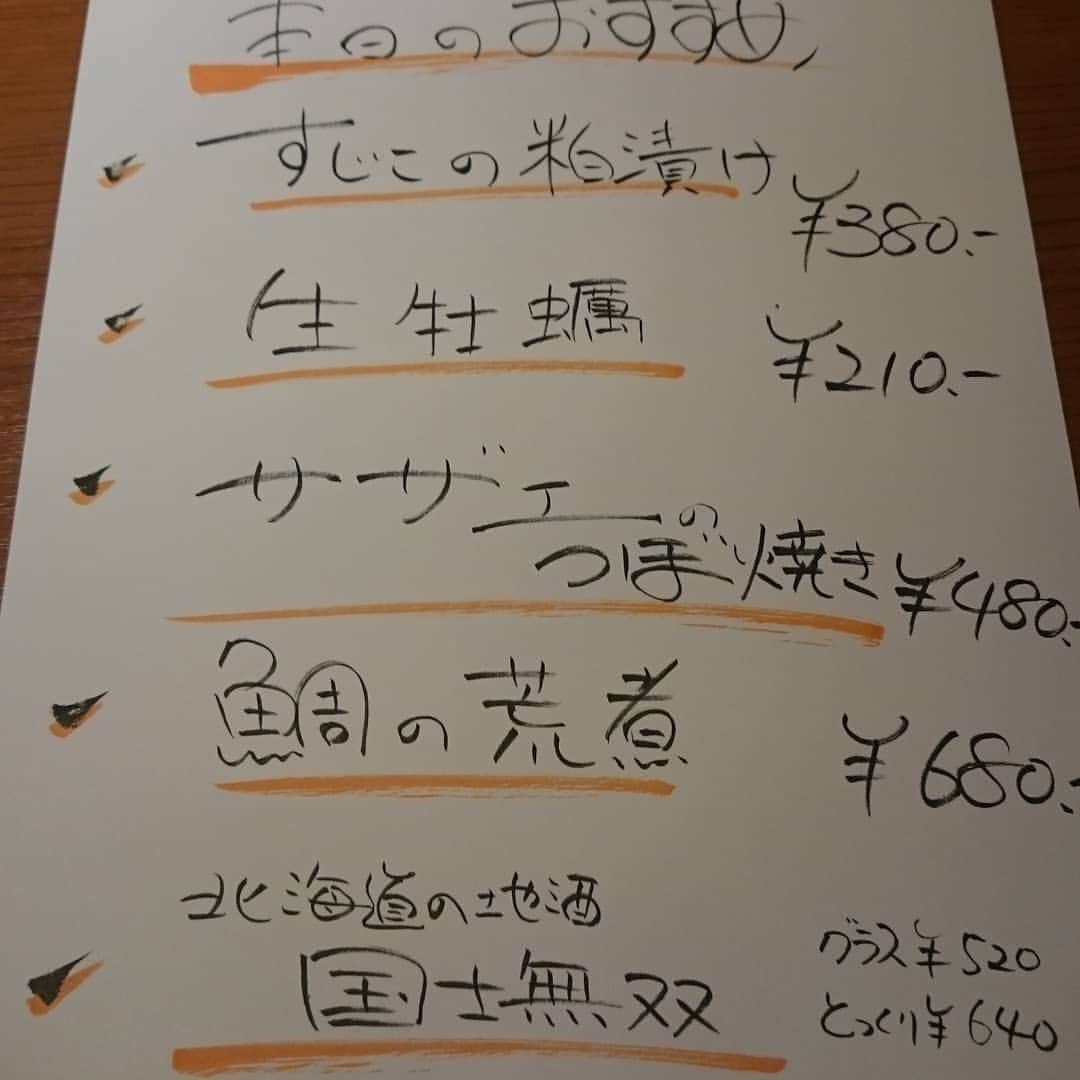 本日のおすすめ
すじこの粕漬け ¥380.-
生牡蠣 ¥210.-
サザエの
つぼ焼き ¥480.-
鯛の荒煮 ¥680.-
北海道の地酒
国士無双
グラス¥520
とっくり¥640